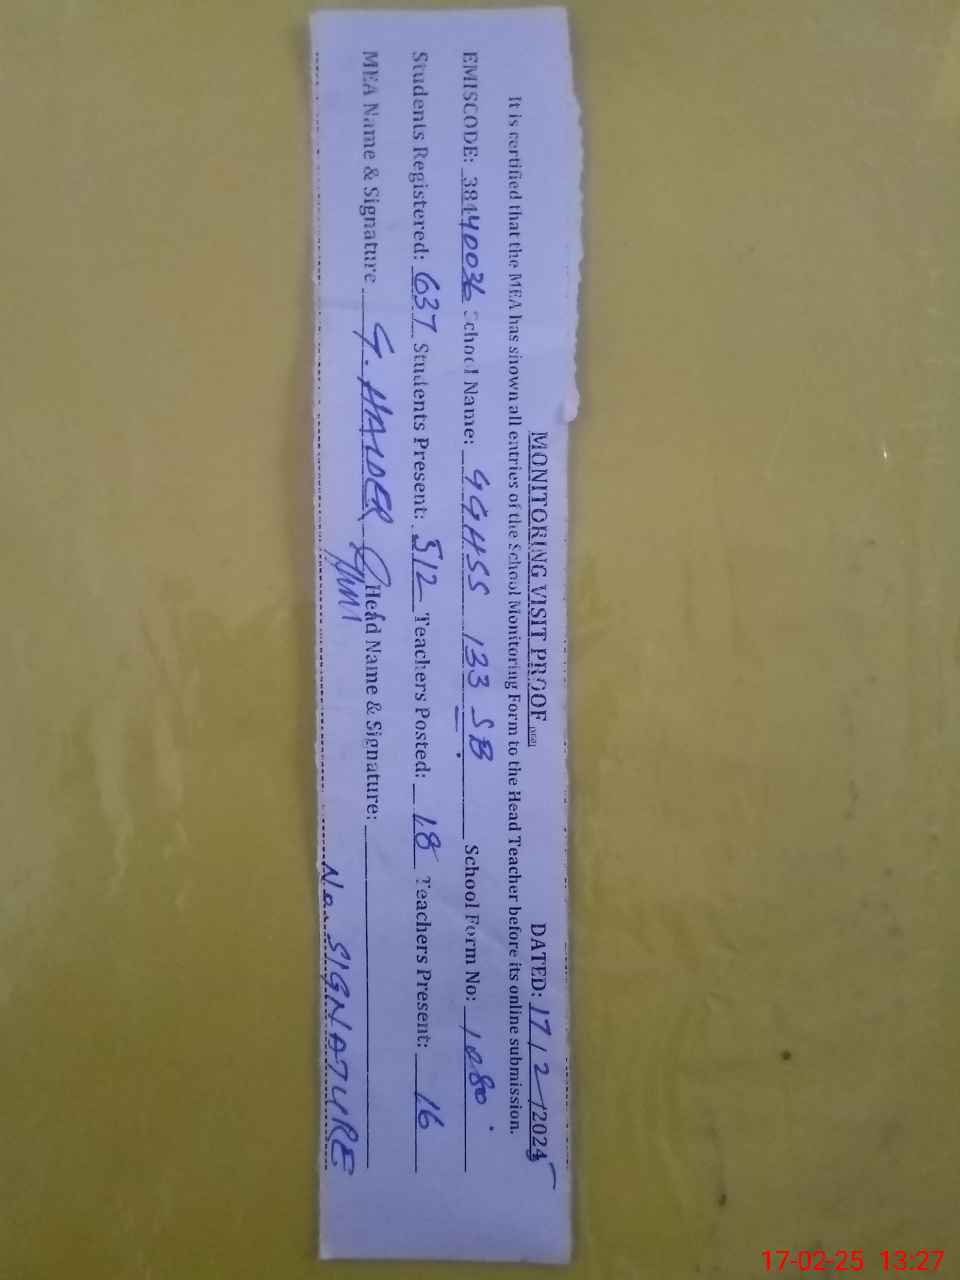 MONITORING VISIT PROOF DATED: 17/2/2025
It is certified that the MEA has shown all entries of the School Monitoring Form to the Head Teacher before its online submission.
EMISCODE: 38440036 School Name: GGHSS 133 SB School Form No: 1080
Students Registered: 637 Students Present: 512 Teachers Posted: 18 Teachers Present: 16
MEA Name & Signature G. HAIDER Head Name & Signature:
No SIGNATURE
17-02-25 13:27